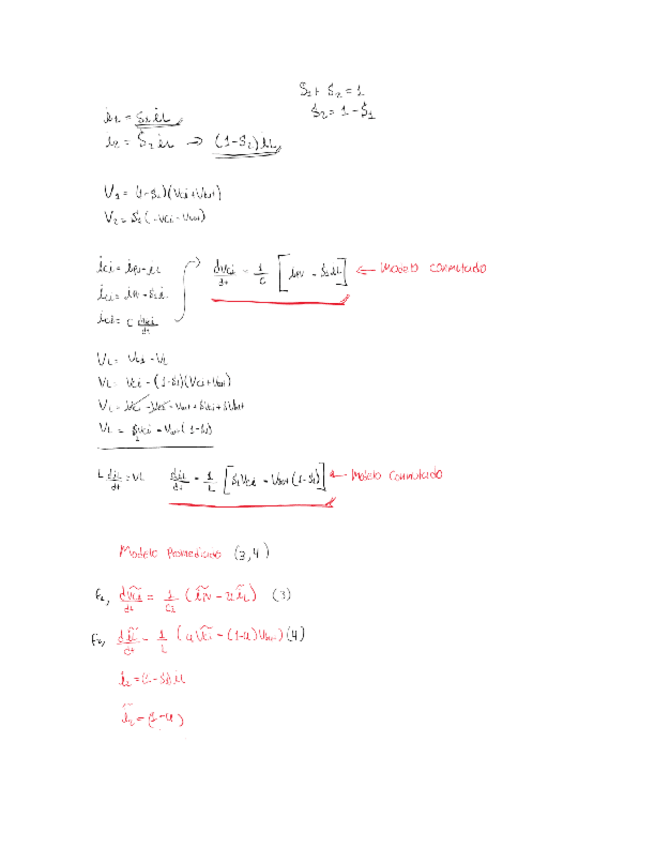 S₁ + S₂ = 1
S₂ = 1 - S₁
i₁ = S₁ iL
i₂ = S₂ iL → (1-S₁) iL
V₁ = (1-S₁)(Vci+Vbat)
V₂ = S₁(-Vci-Vbat)
ici = ipv - i₁
ici = ipv - S₁ iL
ici = C dvci/dt
dvci/dt = 1/C [ipv - S₁iL] ← Modelo conmutado
VL = Vci - V₁
VL = Vci - (1-S₁)(Vci+Vbat)
VL = Vci - Vci - Vbat + S₁Vci + S₁Vbat
VL = S₁Vci - Vbat(1-S₁)
L diL/dt = VL diL/dt = 1/L [S₁Vci - Vbat(1-S₁)] ← Modelo Conmutado
Modelo Promediado (3,4)
dṽci/dt = (ĩpv - uĩL) (3)
dĩL/dt = 1/L (uṽci - (1-u)Vbat) (4)
i₂ = (1-S₁) iL
ĩ₂ = (1-u)